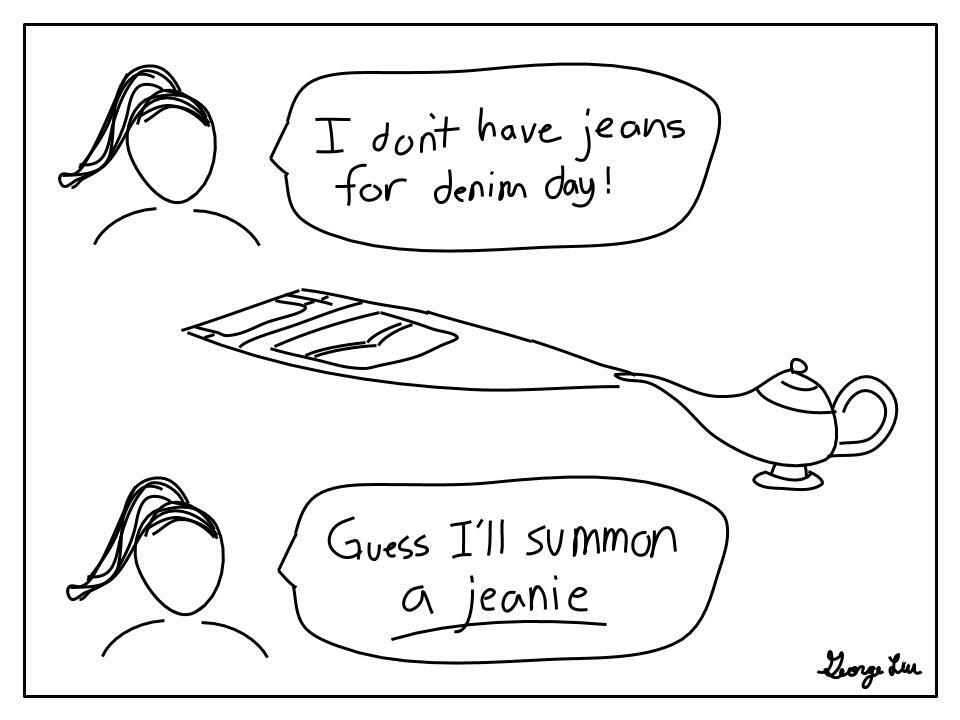 I don't have jeans
for denim day!
Guess I'll summon
a jeanie
George Liu